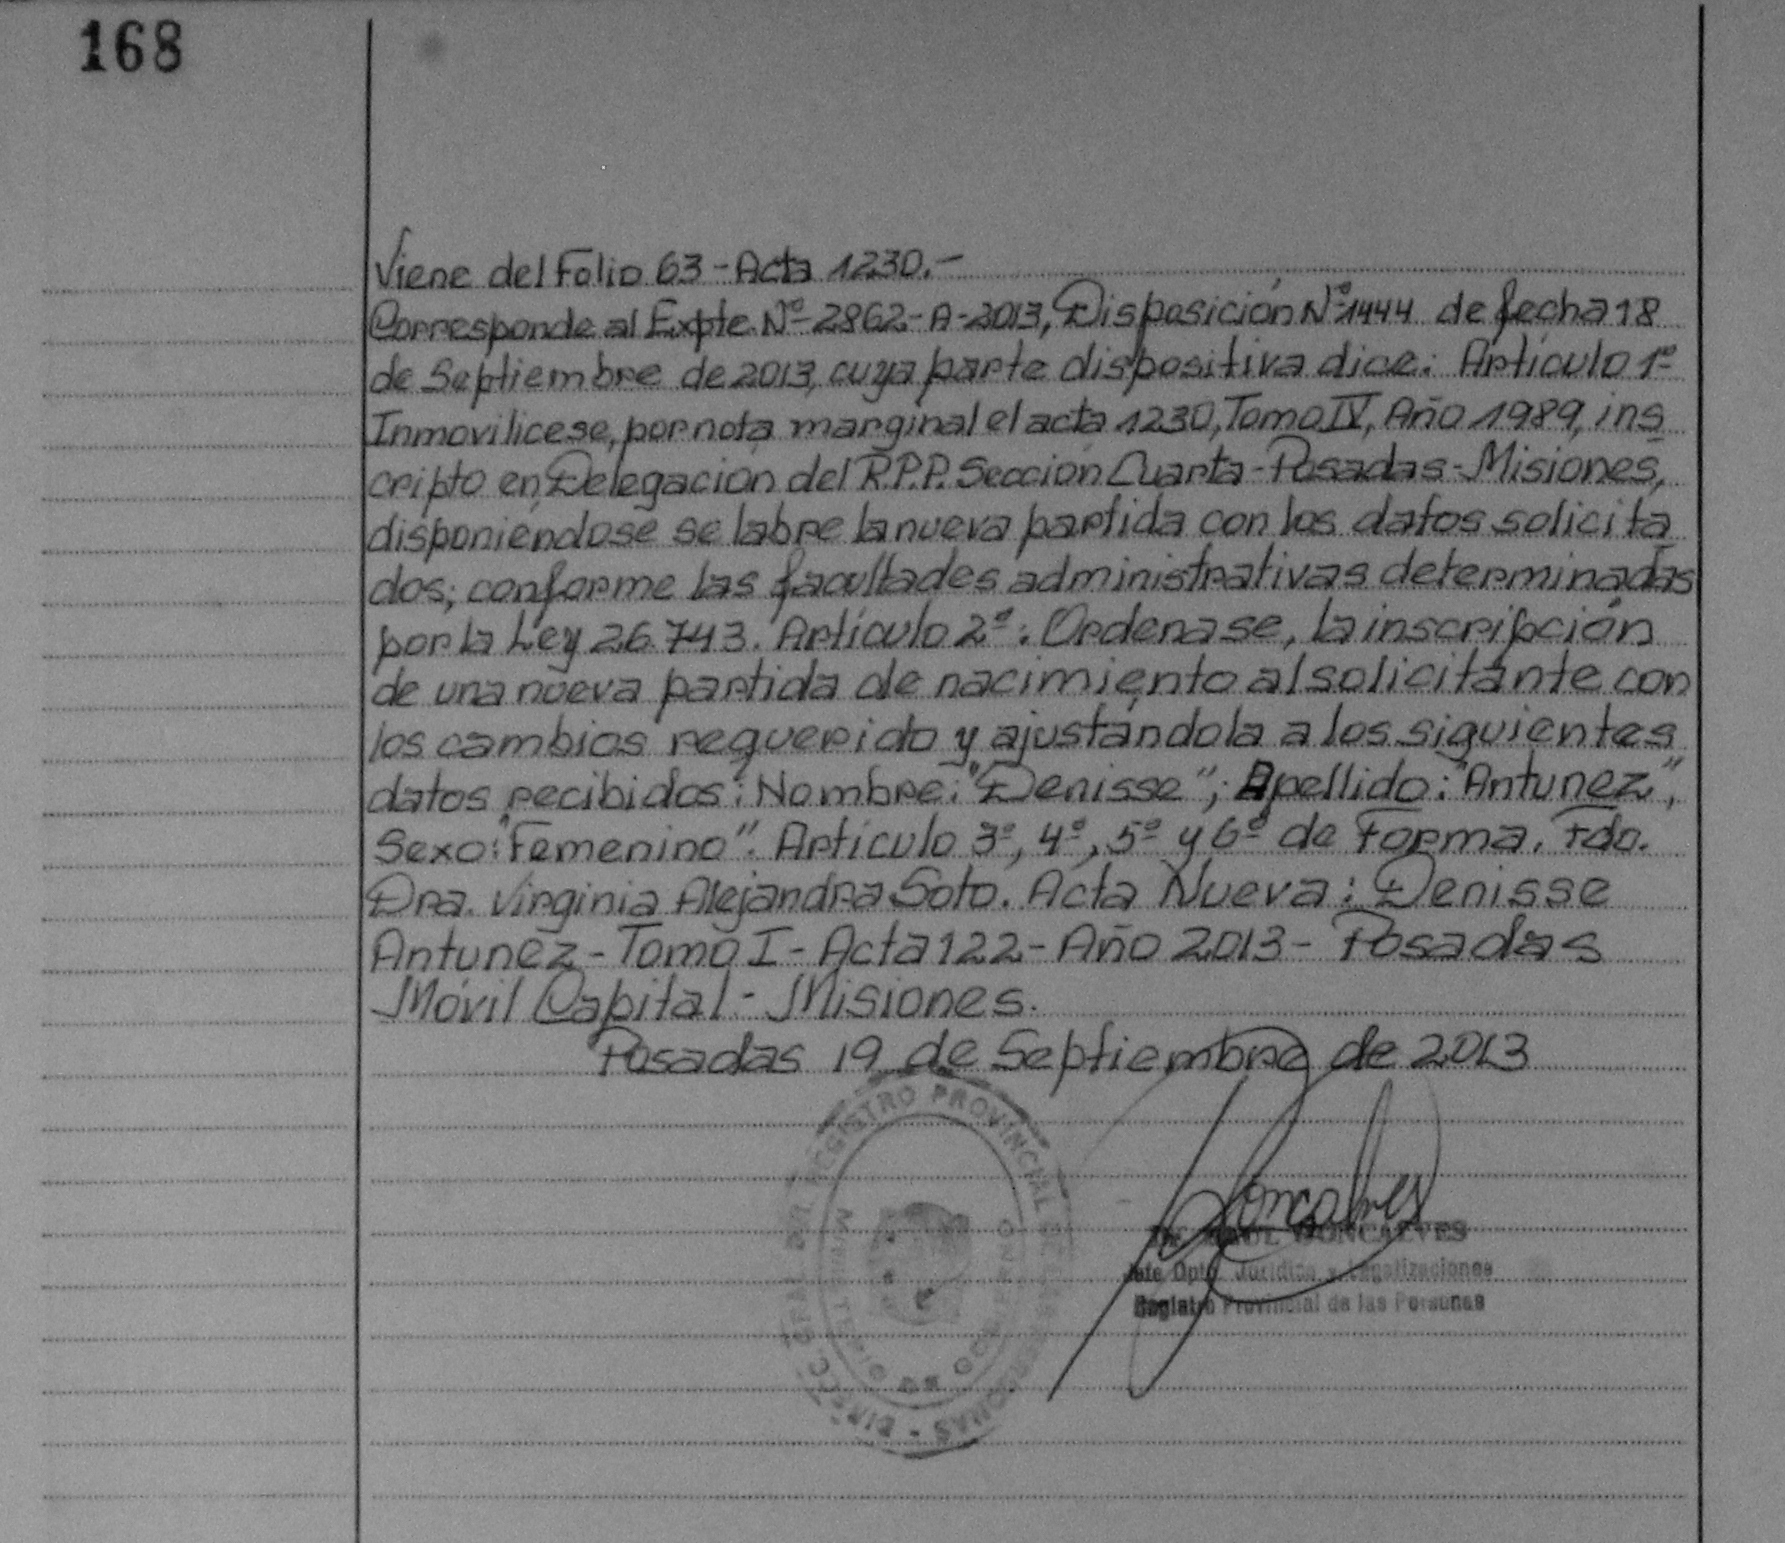 168
Viene del Folio 63 - Acta 1230.-
Corresponde al Expte Nº 2862-A-2013, Disposición Nº 1444 de fecha 18
de Septiembre de 2013, cuya parte dispositiva dice: Artículo 1º
Inmovilicese, por nota marginal el acta 1230, Tomo IV, Año 1989, ins
cripto en Delegación del R.P.P. Sección Cuarta - Posadas - Misiones,
disponiéndose se labre la nueva partida con los datos solicita
dos; conforme las facultades administrativas determinadas
por la Ley 26.743. Artículo 2º: Ordenase, la inscripción
de una nueva partida de nacimiento al solicitante con
los cambios requerido y ajustándola a los siguientes
datos recibidos: Nombre: "Denisse"; Apellido: "Antunez",
Sexo: "Femenino". Artículo 3º, 4º, 5º y 6º de Forma. Fdo.
Dra. Virginia Alejandra Soto. Acta Nueva: Denisse
Antunez - Tomo I - Acta 122 - Año 2013 - Posadas
Móvil Capital - Misiones.
Posadas 19 de Septiembre de 2013
REGISTRO PROVINCIAL DE LAS PERSONAS - DIRECC. GRAL. DEL
MINISTERIO DE GOBIERNO
Goncalves
RAUL GONCALVES
Jefe Dpto. Jurídico y Legalizaciones
Registro Provincial de las Personas